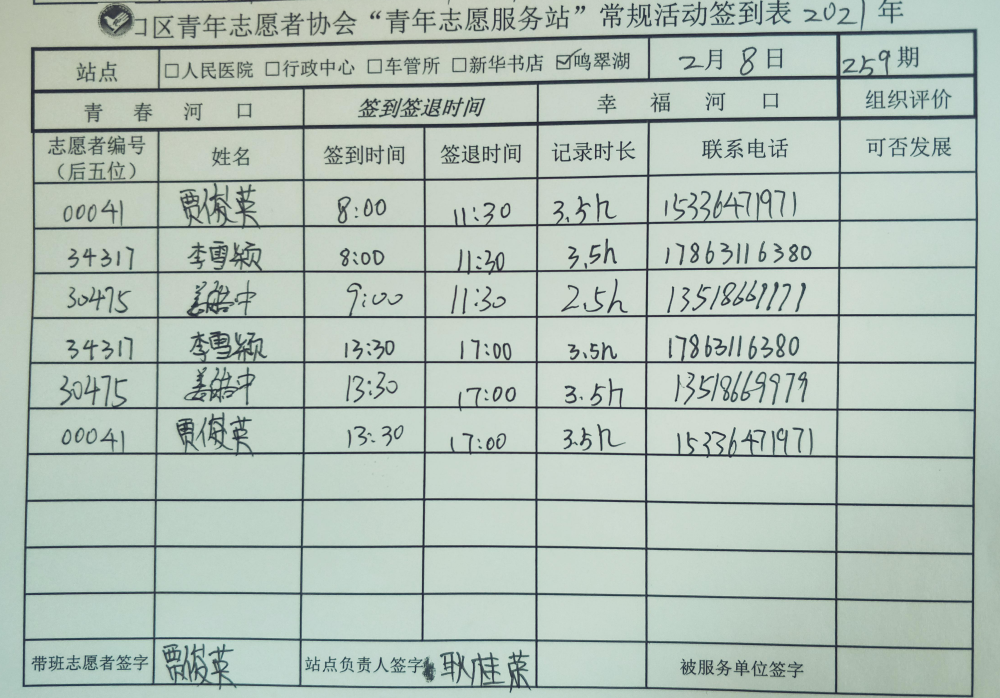 口区青年志愿者协会“青年志愿服务站”常规活动签到表 2021年
站点 □人民医院 □行政中心 □车管所 □新华书店 ☑鸣翠湖 2月8日 259期
青春河口 签到签退时间 幸福河口 组织评价
志愿者编号（后五位） 姓名 签到时间 签退时间 记录时长 联系电话 可否发展
00041 贾俊英 8:00 11:30 3.5h 15336471971
34317 李雪颖 8:00 11:30 3.5h 17863116380
30475 9:00 11:30 2.5h
34317 李雪颖 13:30 17:00 3.5h 17863116380
30475 13:30 17:00 3.5h 13518669979
00041 贾俊英 13:30 17:00 3.5h 15336471971
带班志愿者签字 贾俊英 站点负责人签字 耿桂荣 被服务单位签字